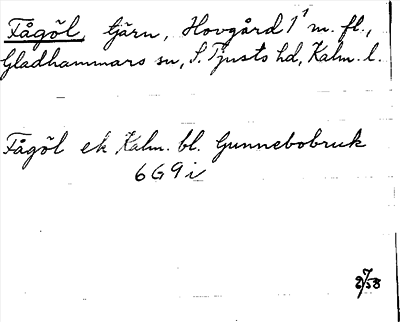 Fågöl, tjärn, Hovgård 1¹ m. fl.,
Gladhammars sn, S. Tjusts hd, Kalm. l.
Fågöl ek Kalm. bl. Gunnebobruk
6G9i